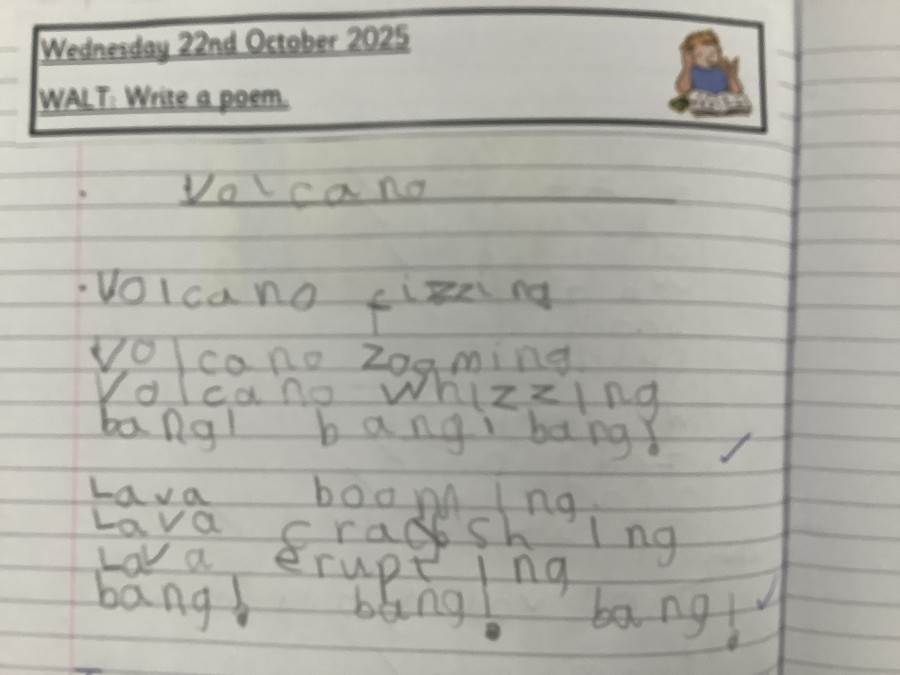 Wednesday 22nd October 2025
WALT: Write a poem.
Volcano
Volcano fizzing
Volcano zooming
Volcano whizzing
bang! bang! bang!
Lava booming
Lava crashing
Lava erupting
bang! bang! bang!